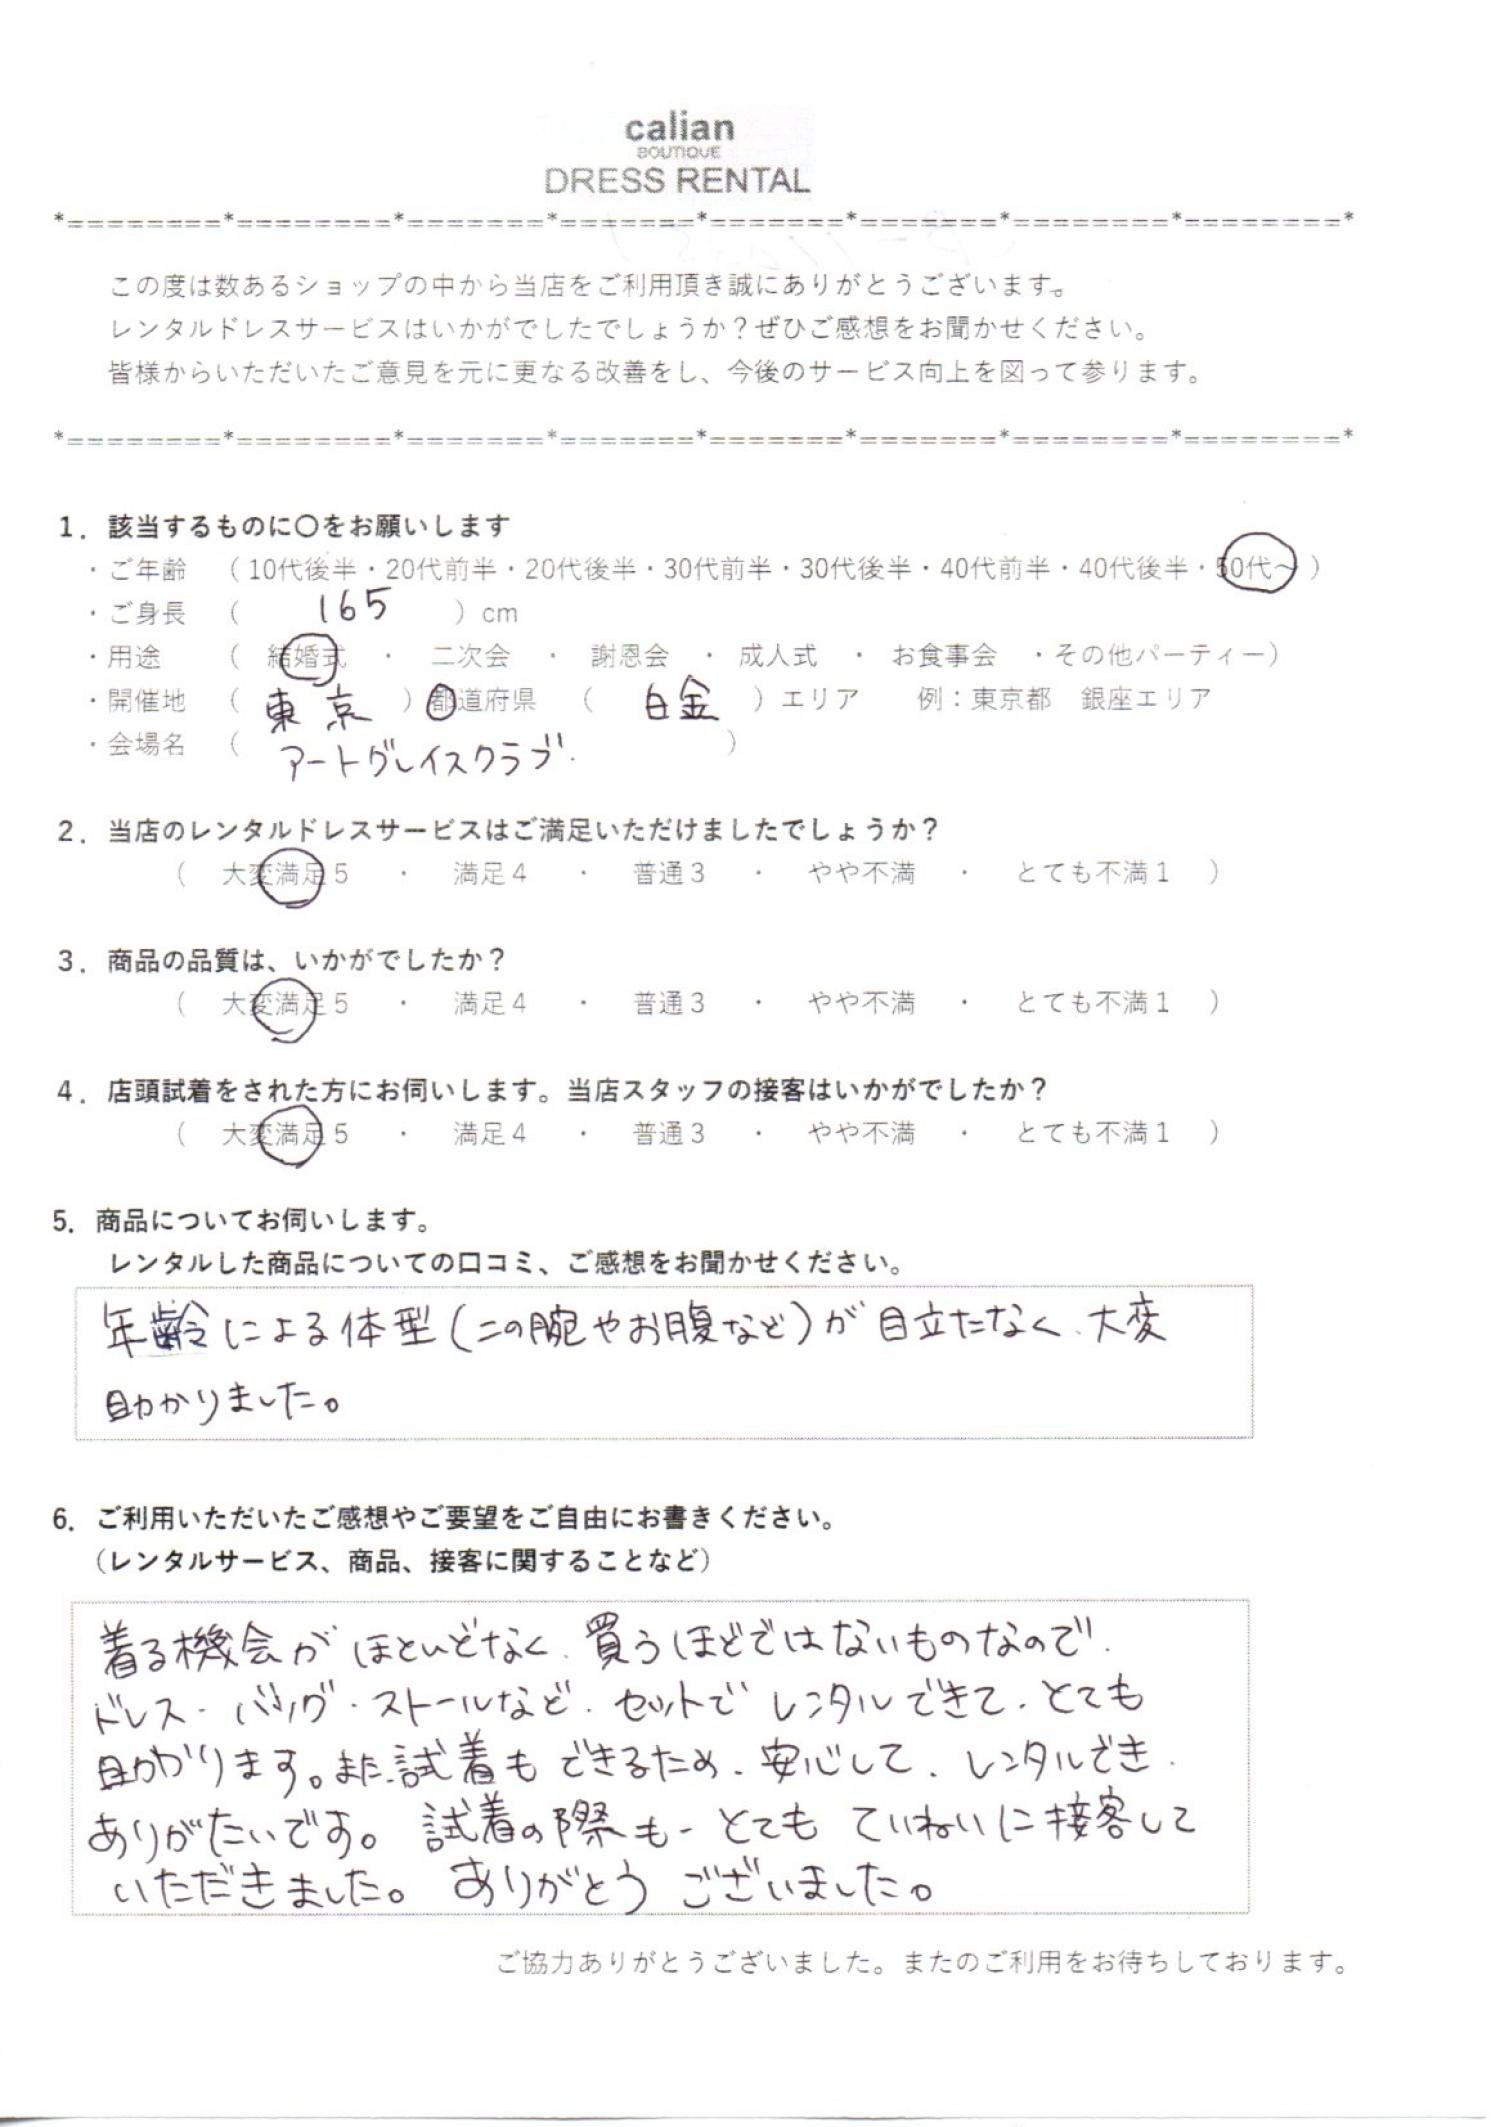 calian
BOUTIQUE
DRESS RENTAL
*========*========*=======*=======*=======*=======*========*========*
この度は数あるショップの中から当店をご利用頂き誠にありがとうございます。
レンタルドレスサービスはいかがでしたでしょうか？ぜひご感想をお聞かせください。
皆様からいただいたご意見を元に更なる改善をし、今後のサービス向上を図って参ります。
*========*========*=======*=======*=======*=======*========*========*
1．該当するものに〇をお願いします
・ご年齢 （10代後半・20代前半・20代後半・30代前半・30代後半・40代前半・40代後半・50代～）
・ご身長 （ 165 ）cm
・用途 （ 結婚式 ・ 二次会 ・ 謝恩会 ・ 成人式 ・ お食事会 ・その他パーティー）
・開催地 （ 東京 ）都道府県 （ 白金 ）エリア 例：東京都 銀座エリア
・会場名 （ アートグレイスクラブ ）
2．当店のレンタルドレスサービスはご満足いただけましたでしょうか？
（ 大変満足5 ・ 満足4 ・ 普通3 ・ やや不満 ・ とても不満1 ）
3．商品の品質は、いかがでしたか？
（ 大変満足5 ・ 満足4 ・ 普通3 ・ やや不満 ・ とても不満1 ）
4．店頭試着をされた方にお伺いします。当店スタッフの接客はいかがでしたか？
（ 大変満足5 ・ 満足4 ・ 普通3 ・ やや不満 ・ とても不満1 ）
5．商品についてお伺いします。
レンタルした商品についての口コミ、ご感想をお聞かせください。
年齢による体型(二の腕やお腹など)が目立たなく、大変
助かりました。
6．ご利用いただいたご感想やご要望をご自由にお書きください。
（レンタルサービス、商品、接客に関することなど）
着る機会がほとんどなく、買うほどではないものなので、
ドレス・バッグ・ストールなど、セットでレンタルできて、とても
助かります。また、試着もできるため、安心して、レンタルでき、
ありがたいです。試着の際も、とてもていねいに接客して
いただきました。ありがとうございました。
ご協力ありがとうございました。またのご利用をお待ちしております。